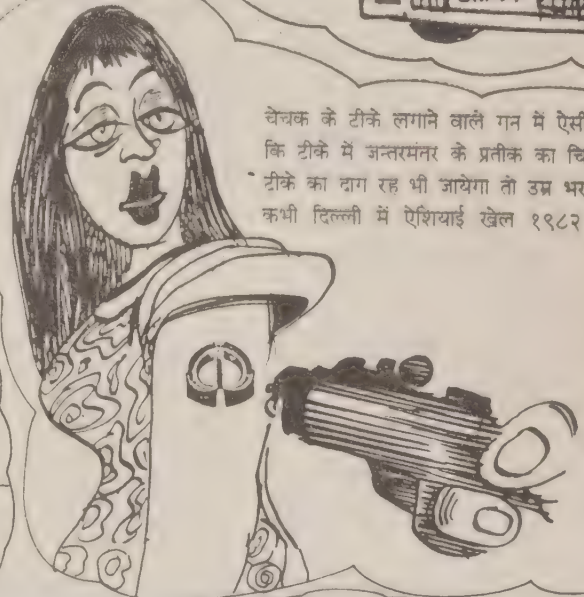 चेचक के टीके लगाने वाले गन में ऐसी
कि टीके में जन्तरमंतर के प्रतीक का चि
टीके का दाग रह भी जायेगा तो उम्र भर
कभी दिल्ली में ऐशियाई खेल १९८२